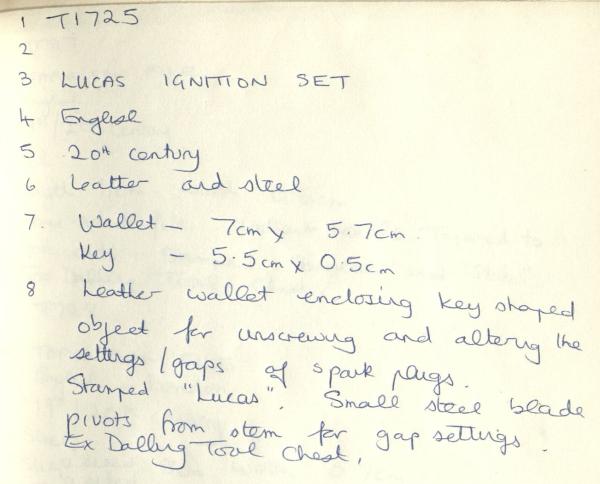 1 T1725
2
3 LUCAS IGNITION SET
4 English
5 20th century
6 Leather and steel
7. Wallet – 7cm x 5.7cm.
Key – 5.5cm x 0.5cm
8 Leather wallet enclosing key shaped
object for unscrewing and altering the
settings/gaps of spark plugs.
Stamped "Lucas". Small steel blade
pivots from stem for gap settings.
Ex Dalling Tool Chest.